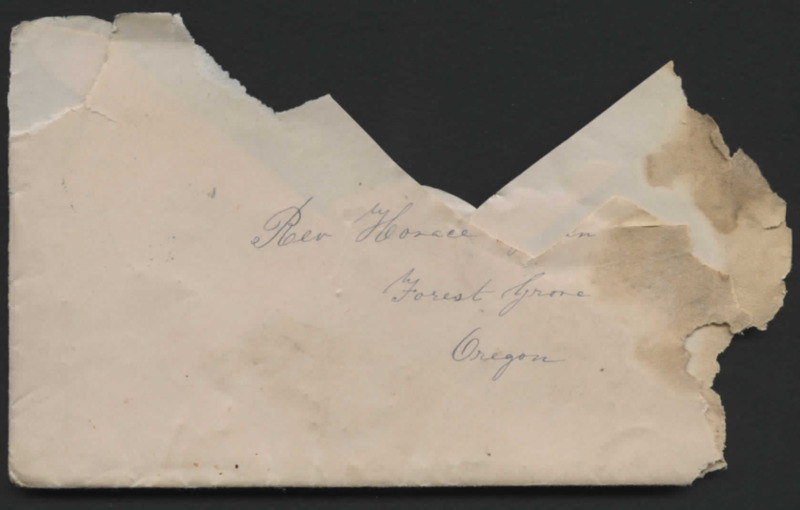 Rev Horace in
Forest Grove
Oregon